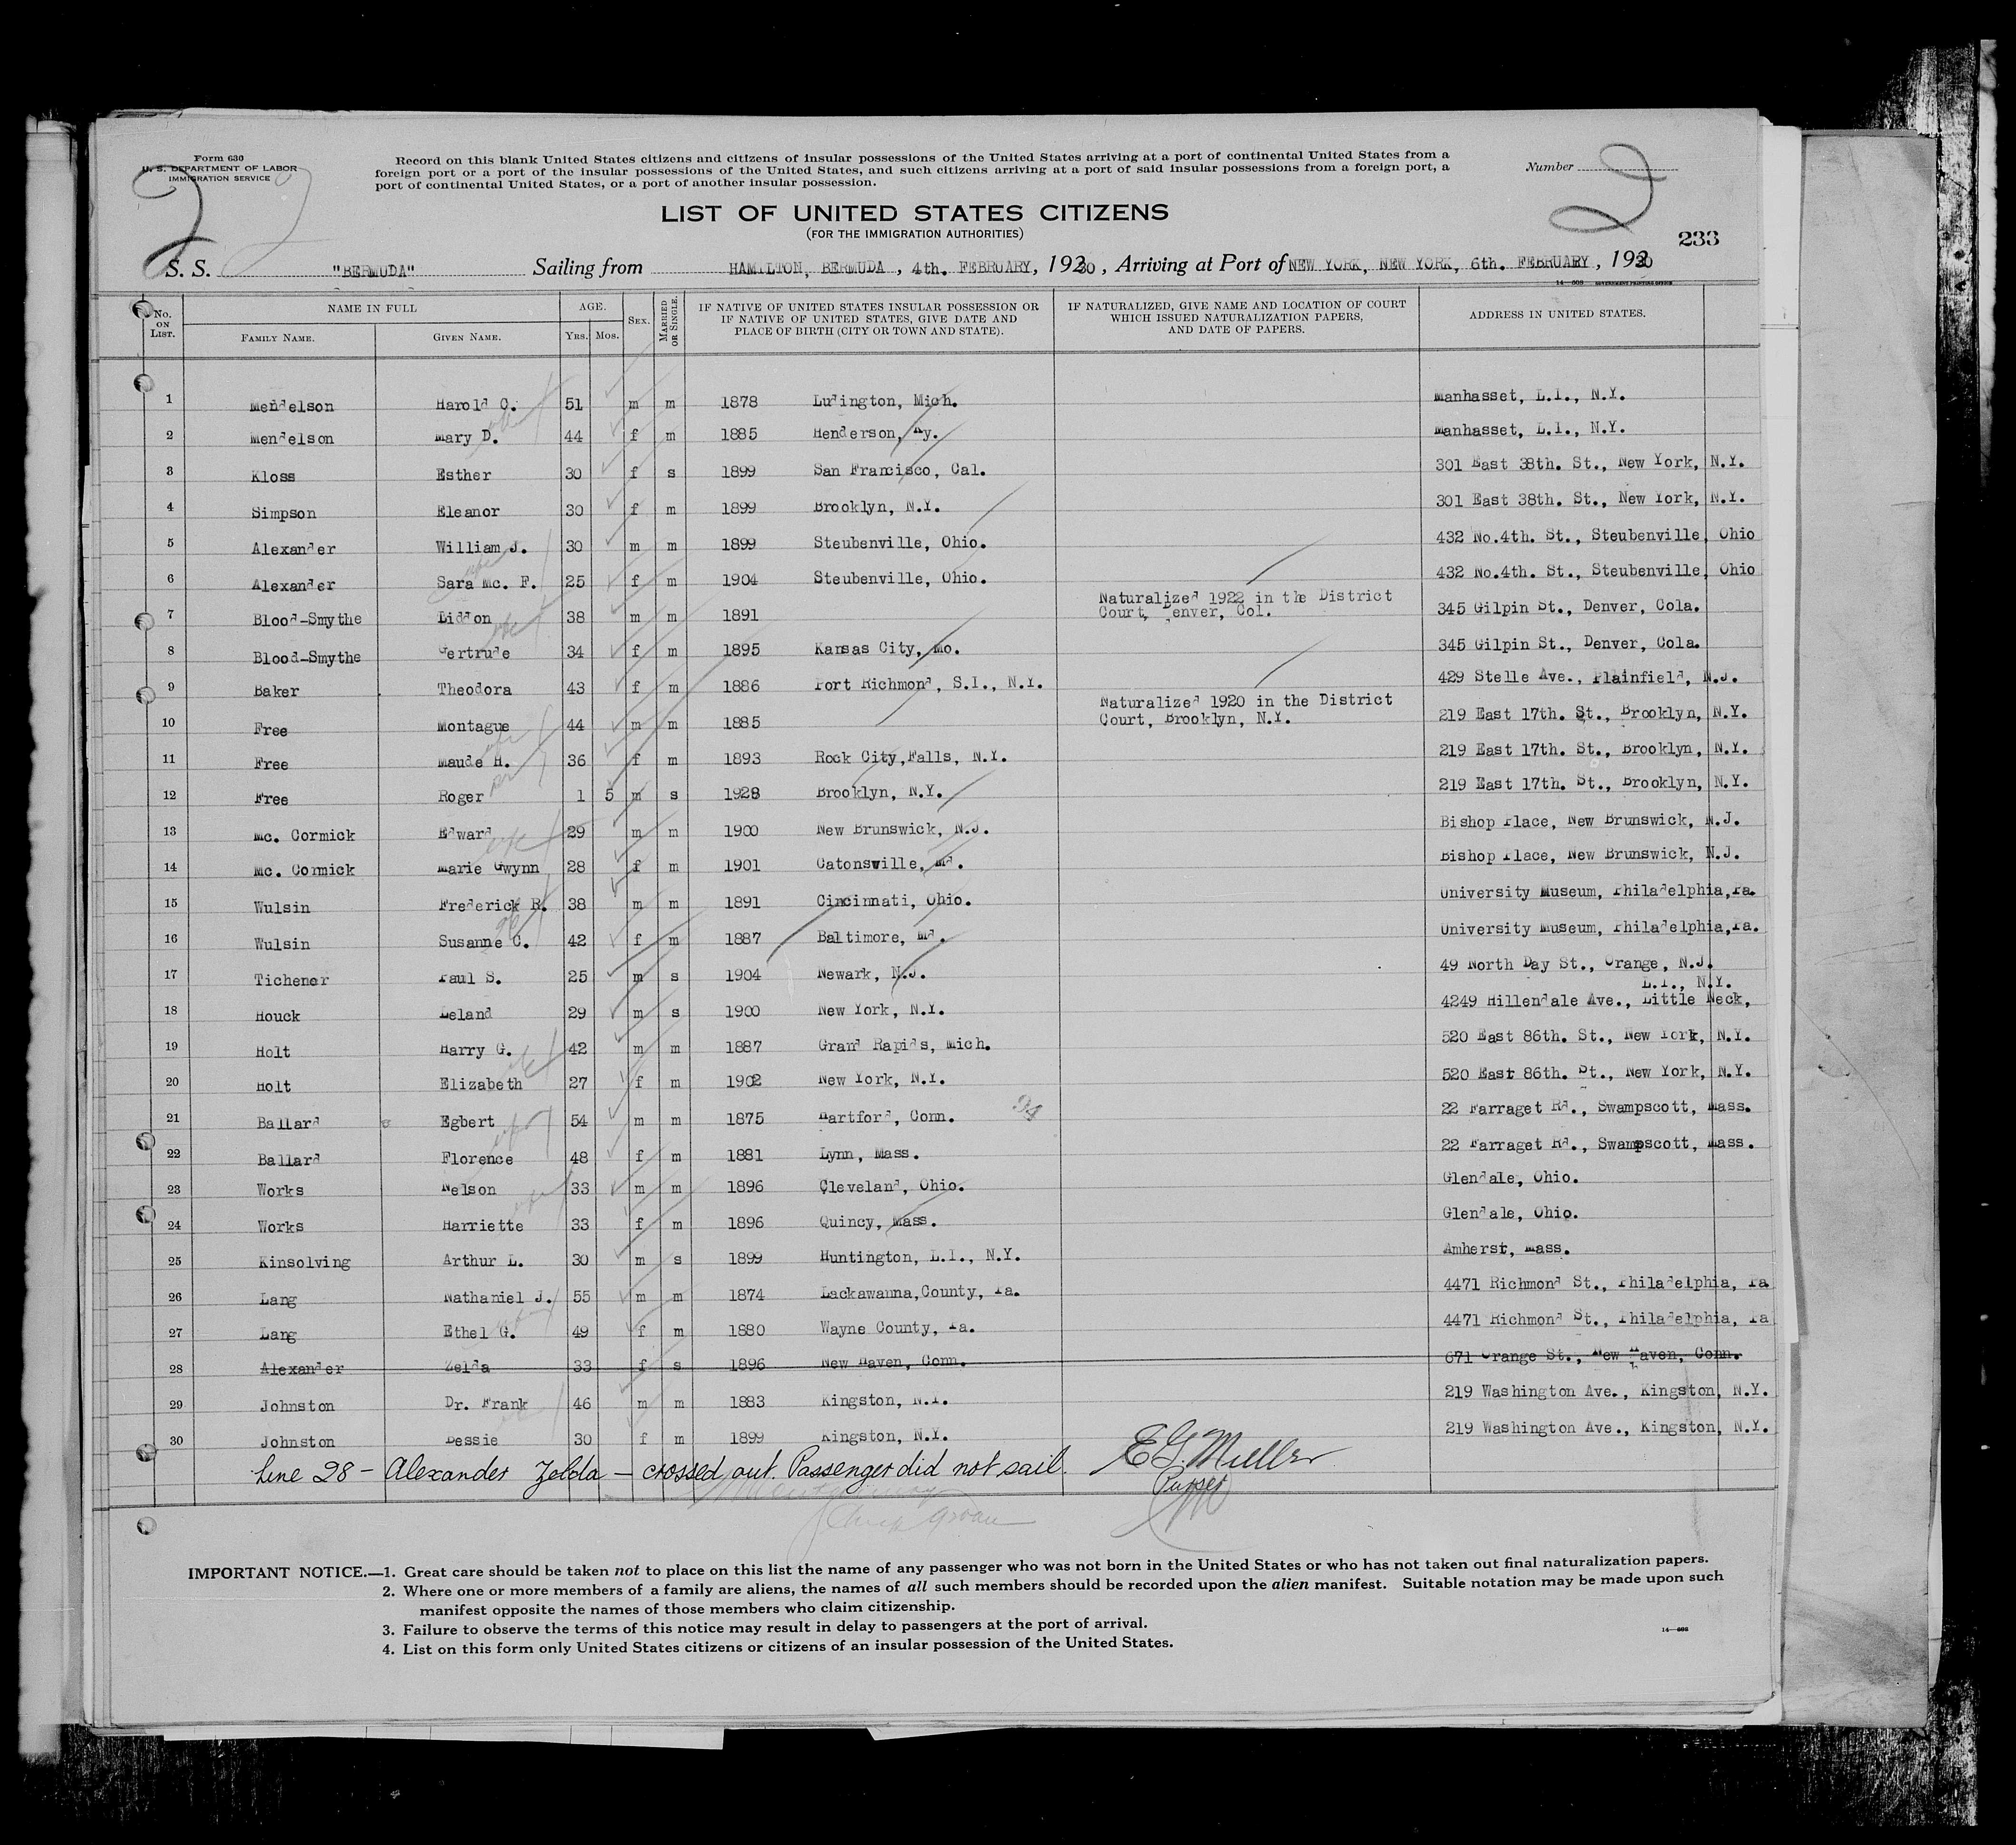 Form 630
U. S. DEPARTMENT OF LABOR
IMMIGRATION SERVICE
Record on this blank United States citizens and citizens of insular possessions of the United States arriving at a port of continental United States from a
foreign port or a port of the insular possessions of the United States, and such citizens arriving at a port of said insular possessions from a foreign port, a
port of continental United States, or a port of another insular possession.
Number
2
2
LIST OF UNITED STATES CITIZENS
(FOR THE IMMIGRATION AUTHORITIES)
233
S. S. "BERMUDA" Sailing from HAMILTON, BERMUDA, 4th. FEBRUARY, 1930, Arriving at Port of NEW YORK, NEW YORK, 6th. FEBRUARY, 1930
14—608 GOVERNMENT PRINTING OFFICE
No. ON LIST. NAME IN FULL FAMILY NAME. GIVEN NAME. AGE. YRS. MOS. SEX. MARRIED OR SINGLE. IF NATIVE OF UNITED STATES INSULAR POSSESSION OR IF NATIVE OF UNITED STATES, GIVE DATE AND PLACE OF BIRTH (CITY OR TOWN AND STATE). IF NATURALIZED, GIVE NAME AND LOCATION OF COURT WHICH ISSUED NATURALIZATION PAPERS, AND DATE OF PAPERS. ADDRESS IN UNITED STATES.
1 Mendelson Harold C. 51 m m 1878 Ludington, Mich. Manhasset, L.I., N.Y.
2 Mendelson Mary D. 44 f m 1885 Henderson, Ky. Manhasset, L.I., N.Y.
3 Kloss Esther 30 f s 1899 San Francisco, Cal. 301 East 38th. St., New York, N.Y.
4 Simpson Eleanor 30 f m 1899 Brooklyn, N.Y. 301 East 38th. St., New York, N.Y.
5 Alexander William J. 30 m m 1899 Steubenville, Ohio. 432 No.4th. St., Steubenville, Ohio
6 Alexander Sara Mc. F. 25 f m 1904 Steubenville, Ohio. 432 No.4th. St., Steubenville, Ohio
7 Blood-Smythe Liddon 38 m m 1891 Naturalized 1922 in the District Court, Denver, Col. 345 Gilpin St., Denver, Cola.
8 Blood-Smythe Gertrude 34 f m 1895 Kansas City, Mo. 345 Gilpin St., Denver, Cola.
9 Baker Theodora 43 f m 1886 Port Richmond, S.I., N.Y. 429 Stelle Ave., Plainfield, N.J.
10 Free Montague 44 m m 1885 Naturalized 1920 in the District Court, Brooklyn, N.Y. 219 East 17th. St., Brooklyn, N.Y.
11 Free Maude H. 36 f m 1893 Rock City,Falls, N.Y. 219 East 17th. St., Brooklyn, N.Y.
12 Free Roger 1 5 m s 1928 Brooklyn, N.Y. 219 East 17th. St., Brooklyn, N.Y.
13 Mc. Cormick Edward 29 m m 1900 New Brunswick, N.J. Bishop Place, New Brunswick, N.J.
14 Mc. Cormick Marie Gwynn 28 f m 1901 Catonsville, Md. Bishop Place, New Brunswick, N.J.
15 Wulsin Frederick R. 38 m m 1891 Cincinnati, Ohio. University Museum, Philadelphia,Pa.
16 Wulsin Susanne C. 42 f m 1887 Baltimore, Md. University Museum, Philadelphia,Pa.
17 Tichener Paul S. 25 m s 1904 Newark, N.J. 49 North Day St., Orange, N.J.
18 Houck Leland 29 m s 1900 New York, N.Y. 4249 Hillendale Ave., Little Neck, L.I., N.Y.
19 Holt Harry G. 42 m m 1887 Grand Rapids, Mich. 520 East 86th. St., New York, N.Y.
20 Holt Elizabeth 27 f m 1902 New York, N.Y. 520 East 86th. St., New York, N.Y.
21 Ballard Egbert 54 m m 1875 Hartford, Conn. 22 Farraget Rd., Swampscott, Mass.
22 Ballard Florence 48 f m 1881 Lynn, Mass. 22 Farraget Rd., Swampscott, Mass.
23 Works Nelson 33 m m 1896 Cleveland, Ohio. Glendale, Ohio.
24 Works Harriette 33 f m 1896 Quincy, Mass. Glendale, Ohio.
25 Kinsolving Arthur L. 30 m s 1899 Huntington, L.I., N.Y. Amherst, Mass.
26 Lang Nathaniel J. 55 m m 1874 Lackawanna,County, Pa. 4471 Richmond St., Philadelphia, Pa
27 Lang Ethel G. 49 f m 1880 Wayne County, Pa. 4471 Richmond St., Philadelphia, Pa
28 Alexander Zelda 33 f s 1896 New Haven, Conn. 671 Orange St., New Haven, Conn.
29 Johnston Dr. Frank 46 m m 1883 Kingston, N.Y. 219 Washington Ave., Kingston, N.Y.
30 Johnston Bessie 30 f m 1899 Kingston, N.Y. 219 Washington Ave., Kingston, N.Y.
Line 28 – Alexander Zelda – crossed out. Passenger did not sail. E G. Mueller
Purser
IMPORTANT NOTICE.—1. Great care should be taken not to place on this list the name of any passenger who was not born in the United States or who has not taken out final naturalization papers.
2. Where one or more members of a family are aliens, the names of all such members should be recorded upon the alien manifest. Suitable notation may be made upon such
manifest opposite the names of those members who claim citizenship.
3. Failure to observe the terms of this notice may result in delay to passengers at the port of arrival.
4. List on this form only United States citizens or citizens of an insular possession of the United States.
14—608